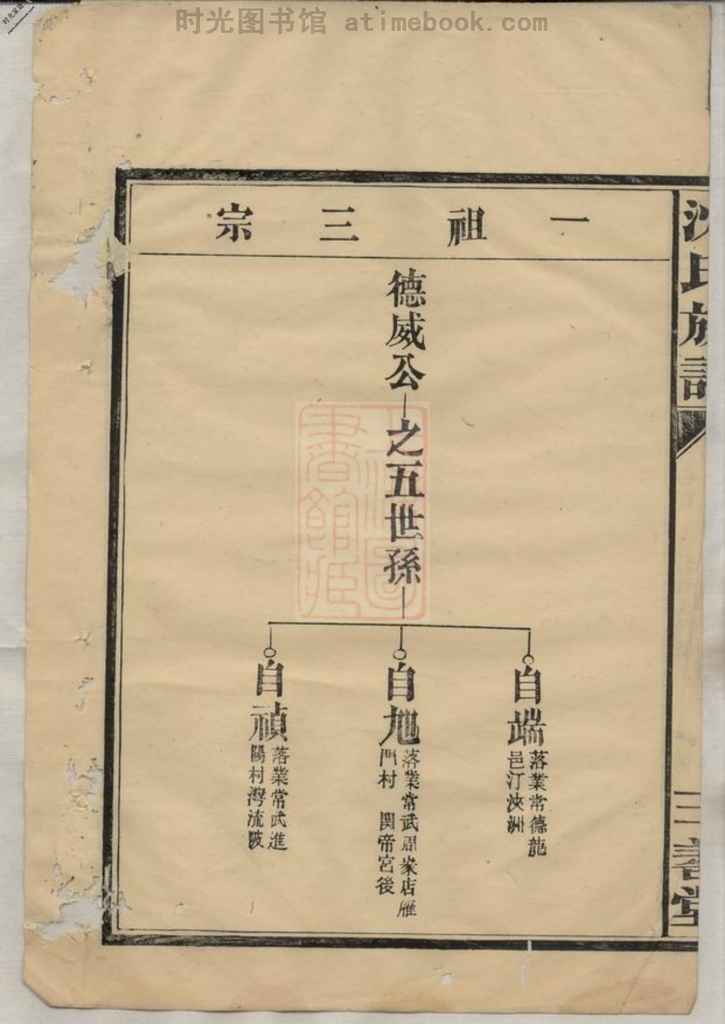 时光图书馆 atimebook.com
一祖三宗
德威公
之五世孫
自端
落業常德龍
邑汀浹洲
自旭
落業常武周家店雁
門村 関帝宮後
自禎
落業常武進
陽村灣流陂
氏族譜
三善堂